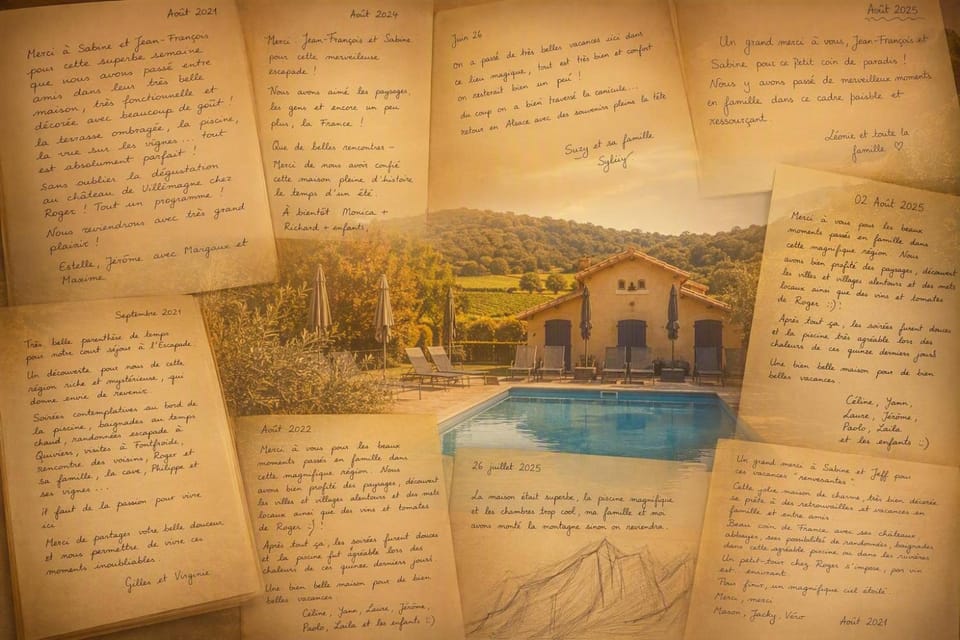 Août 2021
Merci à Sabine et Jean-François
pour cette superbe semaine
que nous avons passé entre
amis dans leur très belle
maison, très fonctionnelle et
décorée avec beaucoup de goût !
la terrasse ombragée, la piscine,
la vue sur les vignes... tout
est absolument parfait !
sans oublier la dégustation
au château de Villemagne chez
Roger ! Tout un programme !
Nous reviendrons avec très grand
plaisir !
Estelle, Jérôme avec Margaux et
Maxime
Août 2024
Merci Jean-François et Sabine
pour cette merveilleuse
escapade !
Nous avons aimé les paysages,
les gens et encore un peu
plus, la France !
Que de belles rencontres –
Merci de nous avoir confié
cette maison pleine d'histoire
le temps d'un été.
À bientôt Monica +
Richard + enfants,
Juin 26
On a passé de très belles vacances ici dans
ce lieu magique, tout est très bien et confort
on resterait bien un peu !
du coup on a bien traversé la canicule...
retour en Alsace avec des souvenirs pleins la tête
Suzy et sa famille
Août 2025
Un grand merci à vous, Jean-François et
Sabine pour ce petit coin de paradis !
Nous y avons passé de merveilleux moments
en famille dans ce cadre paisible et
ressourçant
Léonie et toute la
famille ♡
02 Août 2025
Merci à vous pour les beaux
moments passés en famille dans
cette magnifique région Nous
avons bien profité des paysages, découvert
les villes et villages alentours et des mets
locaux ainsi que des vins et tomates
de Roger :)!
Après tout ça, les soirées furent douces
et la piscine très agréable lors des
chaleurs de ces quinze derniers jours!
Une bien belle maison pour de bien
belles vacances.
Céline, Yann,
Laure, Jérôme,
Paolo, Laila
et les enfants :)
Septembre 2021
Très belle parenthèse de temps
pour notre court séjour à l'Escapade
Un découverte pour nous de cette
région riche et mystérieuse, qui
donne envie de revenir.
Soirées contemplatives au bord de
la piscine, baignades au temps
chaud, randonnées escapade à
Quiviers, visites à Fontfroide,
rencontre des voisins, Roger et
sa famille, la cave, Philippe et
ses vignes...
il faut de la passion pour vivre
ici
Merci de partages votre belle douceur
et nous permettre de vivre ces
moments inoubliables.
Gilles et Virginie
Août 2022
Merci à vous pour les beaux
moments passés en famille dans
cette magnifique région. Nous
avons bien profité des paysages, découvert
les villes et villages alentours et des mets
locaux ainsi que des vins et tomates
de Roger :)!
Après tout ça, les soirées furent douces
et la piscine fut agréable lors des
chaleurs de ces quinze derniers jours!
Une bien belle maison pour de bien
belles vacances
Céline, Yann, Laure, Jérôme,
Paolo, Laila et les enfants :)
26 juillet 2025
La maison était superbe, la piscine magnifique
et les chambres trop cool, ma famille et moi
avons monté la montagne sinon on reviendra.
Un grand merci à Sabine et Jeff pour
ces vacances "renversantes"
Cette jolie maison de charme, très bien décorée
se prête à des retrouvailles et vacances en
famille et entre amis
Beau coin de France avec ses châteaux,
abbayes, ses possibilités de randonnées, baignades
dans cette agréable piscine ou dans les rivières
Un petit-tour chez Roger s'impose, par vin
est enivrant.
Pour finir, un magnifique ciel étoilé
Merci, merci
Mason, Jacky, Véro
Août 2021